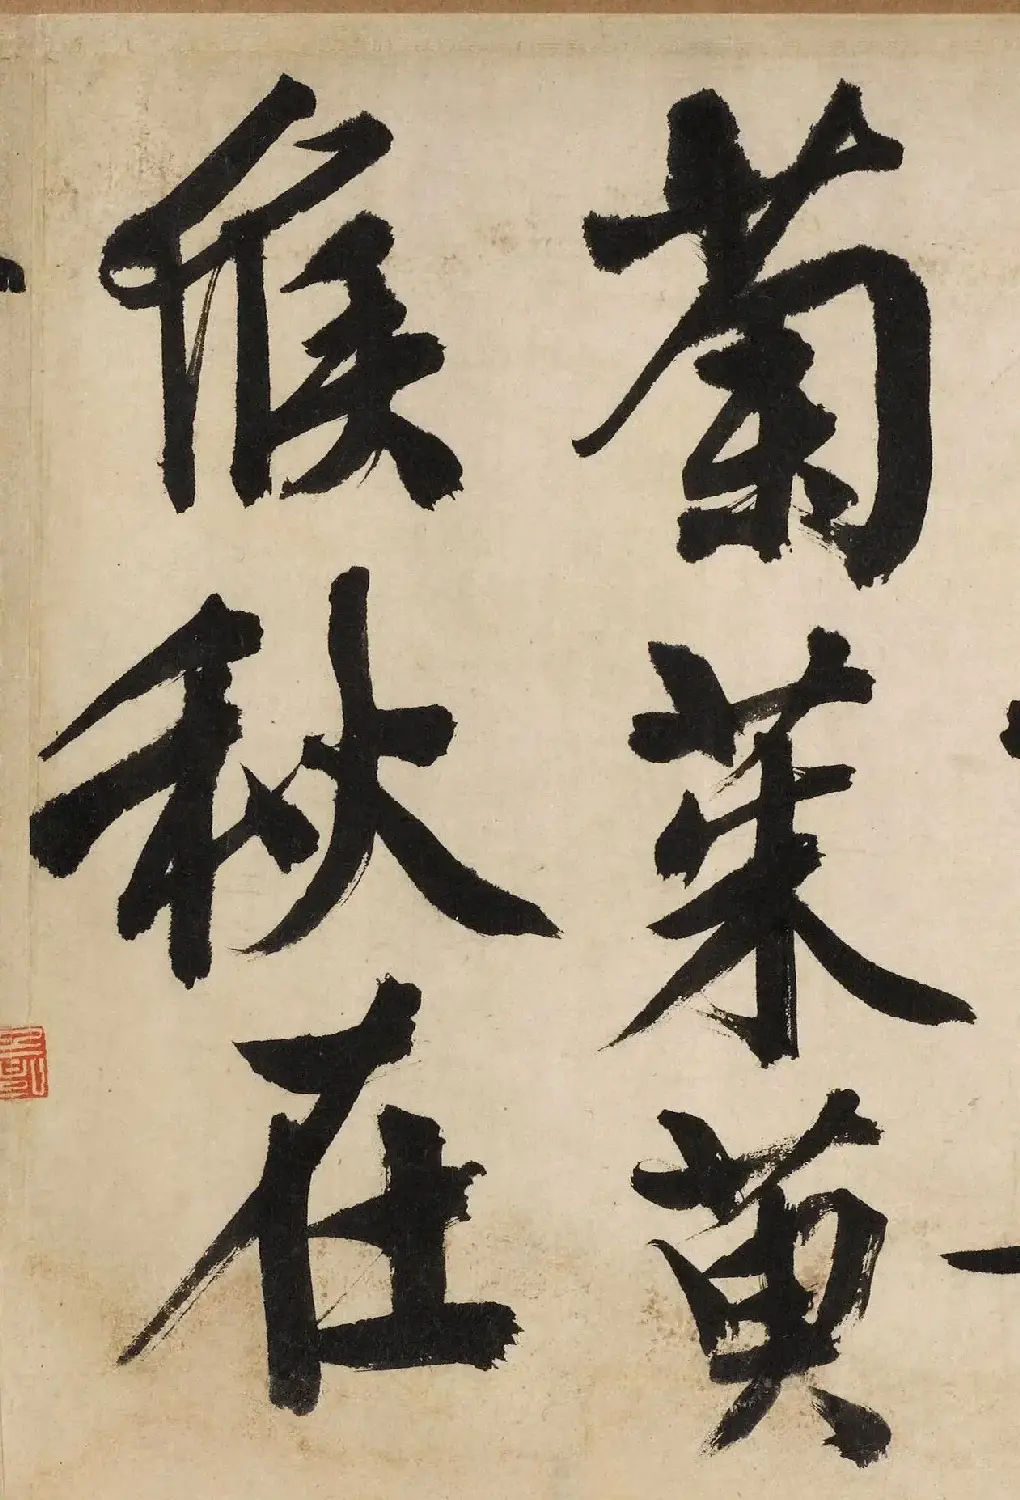 菊茱萸
候秋在